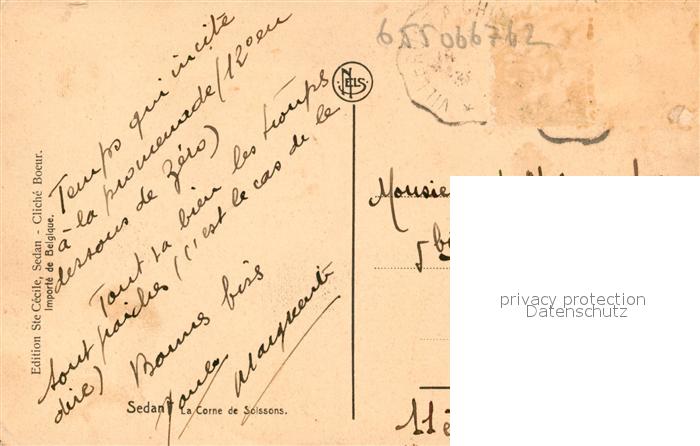 655066762
NELS
Temps qui incite
à la promenade (12° en
dessous de zéro)
Tout va bien les troups
sont fraîches (c'est le cas de le
dire) Bonnes bises
Marguerite
Edition Ste Cécile, Sedan - Cliché Boeur.
Importé de Belgique.
Sedan La Corne de Soissons.
5 bis
11è
privacy protection
Datenschutz